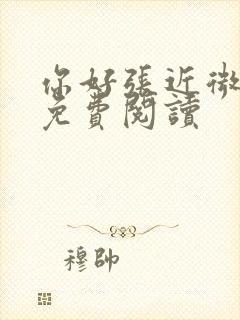 你好張近微
免費閱讀
穆帥